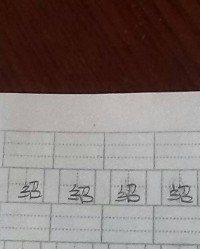 绍 绍 绍 绍